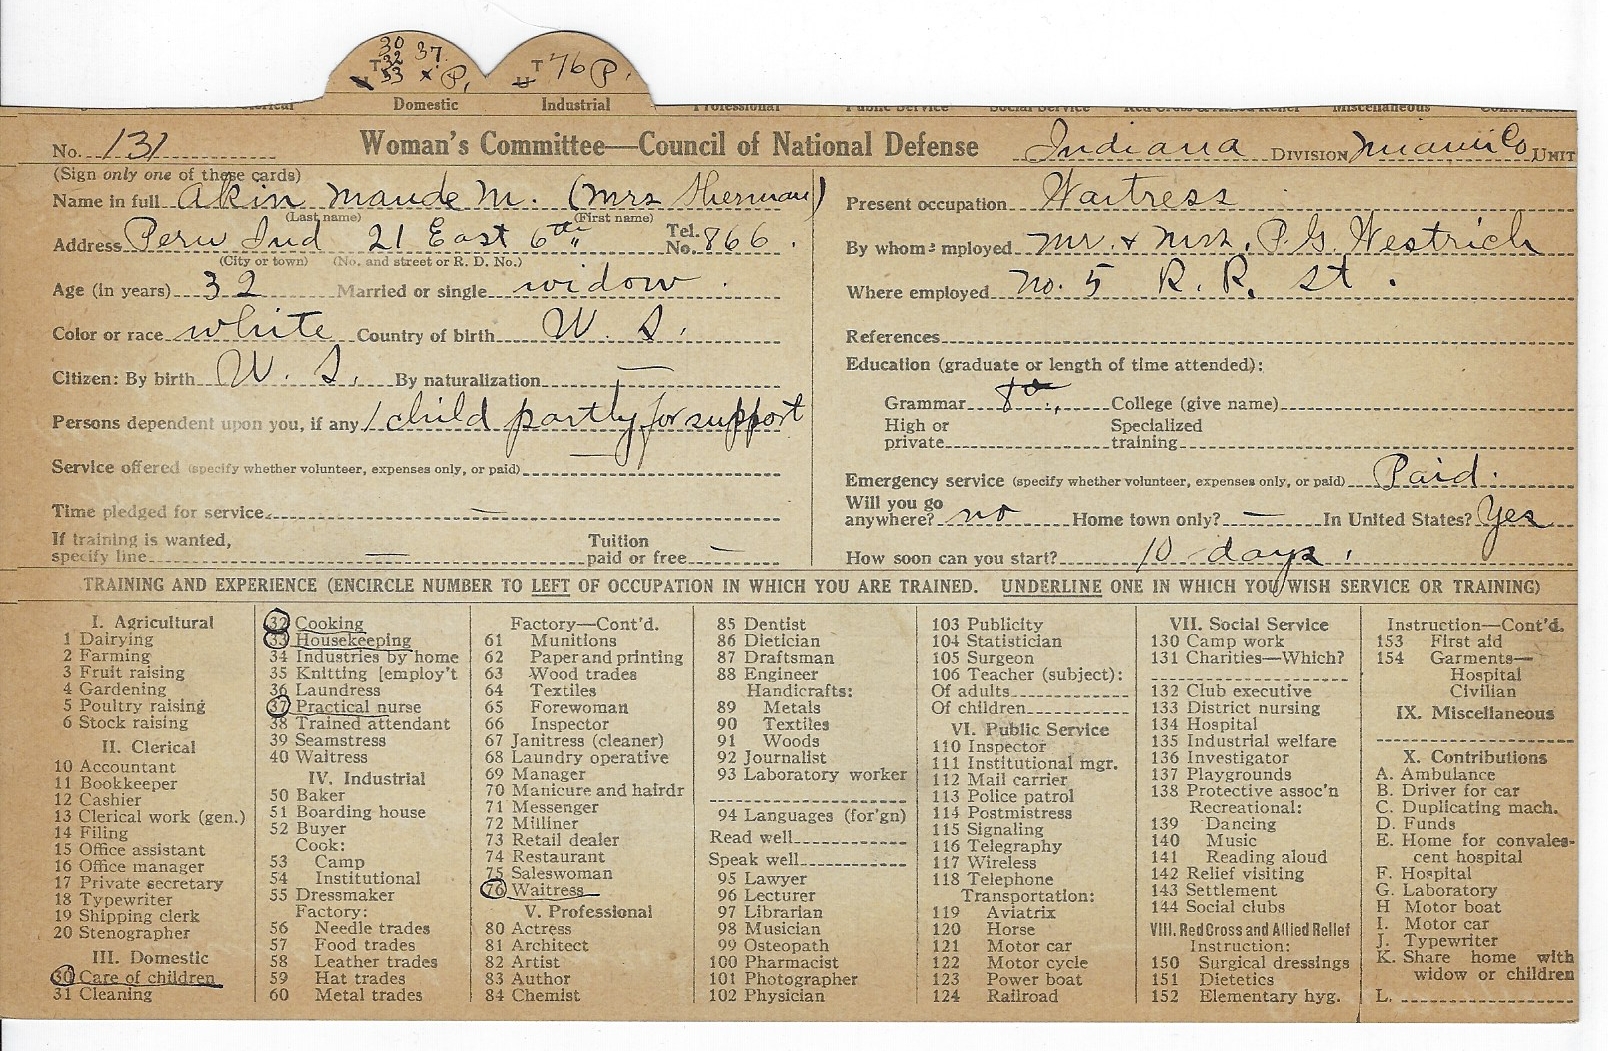 30
T 32 37.
53 x P.
T 76 P.
Domestic Industrial Professional Public Service Social Service Miscellaneous
No. 131 Woman's Committee—Council of National Defense Indiana DIVISION Miami Co. UNIT
(Sign only one of these cards)
Name in full Akin Maude M. (Mrs Sherman)
(Last name) (First name)
Address Peru Ind 21 East 6th Tel. No. 866.
(City or town) (No. and street or R. D. No.)
Age (in years) 32 Married or single widow.
Color or race white Country of birth U. S.
Citizen: By birth U. S. By naturalization —
Persons dependent upon you, if any 1 child partly for support
Service offered (specify whether volunteer, expenses only, or paid) —
Time pledged for service —
If training is wanted,
specify line — Tuition paid or free —
Present occupation Waitress
By whom employed Mr. & Mrs. P. G. Westrich
Where employed No. 5 R. R. St.
References
Education (graduate or length of time attended):
Grammar 8th College (give name)
High or private Specialized training
Emergency service (specify whether volunteer, expenses only, or paid) Paid.
Will you go
anywhere? no Home town only? — In United States? Yes
How soon can you start? 10 days.
TRAINING AND EXPERIENCE (ENCIRCLE NUMBER TO LEFT OF OCCUPATION IN WHICH YOU ARE TRAINED. UNDERLINE ONE IN WHICH YOU WISH SERVICE OR TRAINING)
I. Agricultural
1 Dairying
2 Farming
3 Fruit raising
4 Gardening
5 Poultry raising
6 Stock raising
II. Clerical
10 Accountant
11 Bookkeeper
12 Cashier
13 Clerical work (gen.)
14 Filing
15 Office assistant
16 Office manager
17 Private secretary
18 Typewriter
19 Shipping clerk
20 Stenographer
III. Domestic
30 Care of children
31 Cleaning
32 Cooking
33 Housekeeping
34 Industries by home
35 Knitting [employ't
36 Laundress
37 Practical nurse
38 Trained attendant
39 Seamstress
40 Waitress
IV. Industrial
50 Baker
51 Boarding house
52 Buyer
Cook:
53 Camp
54 Institutional
55 Dressmaker
Factory:
56 Needle trades
57 Food trades
58 Leather trades
59 Hat trades
60 Metal trades
Factory—Cont'd.
61 Munitions
62 Paper and printing
63 Wood trades
64 Textiles
65 Forewoman
66 Inspector
67 Janitress (cleaner)
68 Laundry operative
69 Manager
70 Manicure and hairdr
71 Messenger
72 Milliner
73 Retail dealer
74 Restaurant
75 Saleswoman
76 Waitress
V. Professional
80 Actress
81 Architect
82 Artist
83 Author
84 Chemist
85 Dentist
86 Dietician
87 Draftsman
88 Engineer
Handicrafts:
89 Metals
90 Textiles
91 Woods
92 Journalist
93 Laboratory worker
94 Languages (for'gn)
Read well
Speak well
95 Lawyer
96 Lecturer
97 Librarian
98 Musician
99 Osteopath
100 Pharmacist
101 Photographer
102 Physician
103 Publicity
104 Statistician
105 Surgeon
106 Teacher (subject):
Of adults
Of children
VI. Public Service
110 Inspector
111 Institutional mgr.
112 Mail carrier
113 Police patrol
114 Postmistress
115 Signaling
116 Telegraphy
117 Wireless
118 Telephone
Transportation:
119 Aviatrix
120 Horse
121 Motor car
122 Motor cycle
123 Power boat
124 Railroad
VII. Social Service
130 Camp work
131 Charities—Which?
132 Club executive
133 District nursing
134 Hospital
135 Industrial welfare
136 Investigator
137 Playgrounds
138 Protective assoc'n
Recreational:
139 Dancing
140 Music
141 Reading aloud
142 Relief visiting
143 Settlement
144 Social clubs
VIII. Red Cross and Allied Relief
Instruction:
150 Surgical dressings
151 Dietetics
152 Elementary hyg.
Instruction—Cont'd.
153 First aid
154 Garments—
Hospital
Civilian
IX. Miscellaneous
X. Contributions
A. Ambulance
B. Driver for car
C. Duplicating mach.
D. Funds
E. Home for convales-
cent hospital
F. Hospital
G. Laboratory
H Motor boat
I. Motor car
J. Typewriter
K. Share home with
widow or children
L.